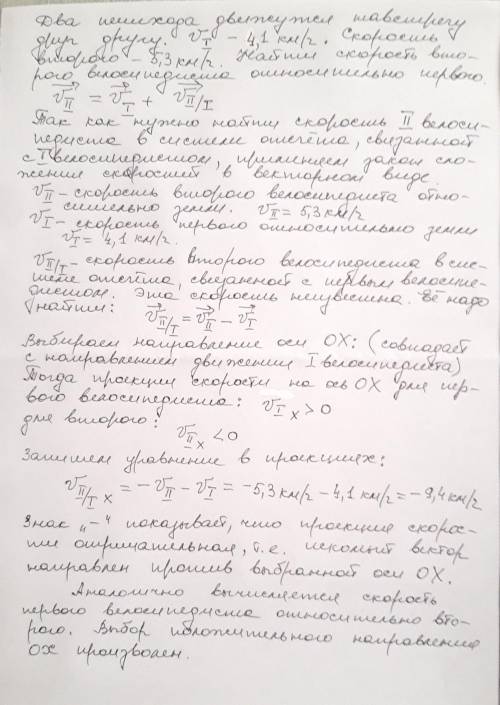 Два пешехода движутся навстречу
друг другу. v⃗_I – 4,1 км/г. Скорость
второго – 5,3 км/г. Найти скорость вто-
рого велосипедиста относительно первого.
v⃗_II = v⃗_I + v⃗_II/I
Так как нужно найти скорость II велоси-
педиста в системе отсчёта, связанной
с I велосипедистом, применяем закон сло-
жения скоростей в векторном виде.
v_II – скорость второго велосипедиста отно-
сительно земли. v_II = 5,3 км/г
v_I – скорость первого относительно земли
v_I = 4,1 км/г.
v_II/I – скорость второго велосипедиста в сис-
теме отсчёта, связанной с первым велосипе-
дистом. Эта скорость неизвестна. Её надо
найти: v⃗_II/I = v⃗_II – v⃗_I
Выбираем направление оси OX: (совпадает
с направлением движения I велосипедиста)
Тогда проекции скорости на ось OX для пер-
вого велосипедиста: v_I x > 0
для второго: v_II x < 0
Запишем уравнение в проекциях:
v_II/I x = – v_II – v_I = –5,3 км/г – 4,1 км/г = – 9,4 км/г
Знак „–" показывает, что проекция скорос-
ти отрицательная, т.е. искомый вектор
направлен против выбранной оси OX.
Аналогично вычисляется скорость
первого велосипедиста относительно вто-
рого. Выбор положительного направления
OX произволен.